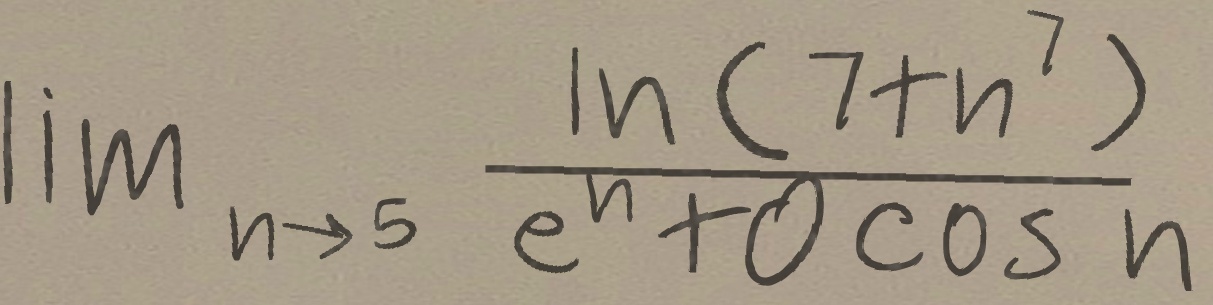 \lim_{n \to 5} \frac{\ln(7+n^7)}{e^n+0\cos n}